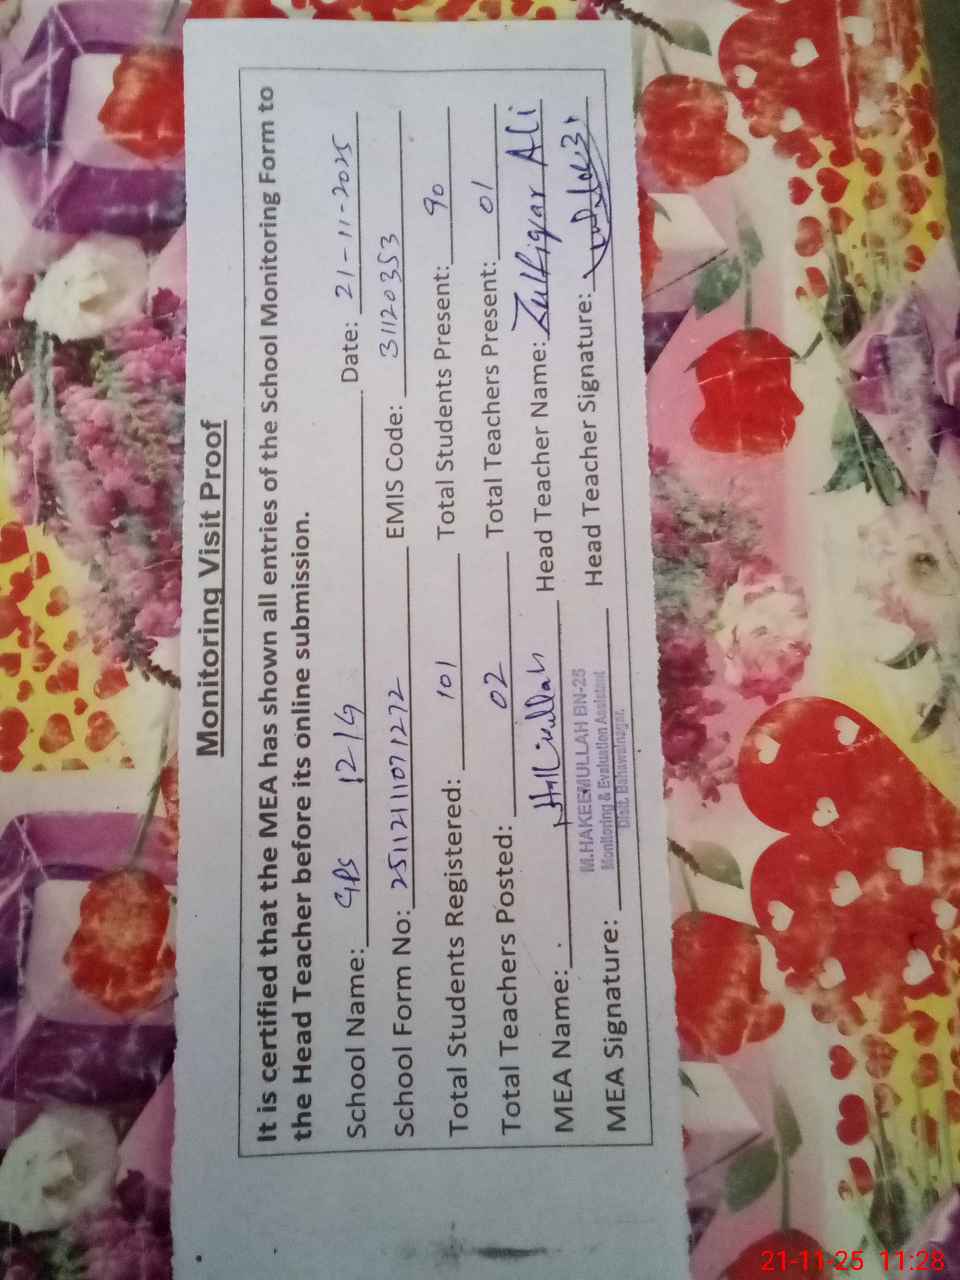 Monitoring Visit Proof
It is certified that the MEA has shown all entries of the School Monitoring Form to
the Head Teacher before its online submission.
School Name: GPS 12/G Date: 21-11-2025
School Form No: 2511211071272 EMIS Code: 31120353
Total Students Registered: 101 Total Students Present: 90
Total Teachers Posted: 02 Total Teachers Present: 01
MEA Name: Head Teacher Name: Zulfiqar Ali
M.HAKEEMULLAH BN-25
MEA Signature: Head Teacher Signature:
Monitoring & Evaluation Assistant
Distt. Bahawalnagar.
21-11-25 11:28